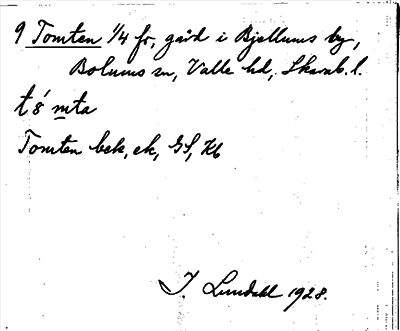 9 Tomten 1/4 fr, gård i Bjellums by,
Bolums sn, Valle hd, Skarab. l.
mta
Tomten bek, ek, GS, Kb
I. Lundahl 1928.